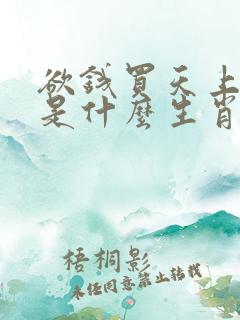 欲钱買天上
是什麼生肖
梧桐影
未经同意禁止转载